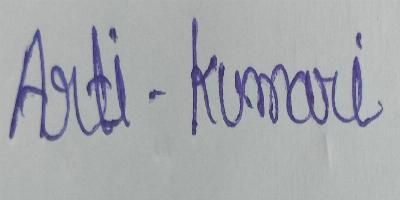 Arti - Kumari